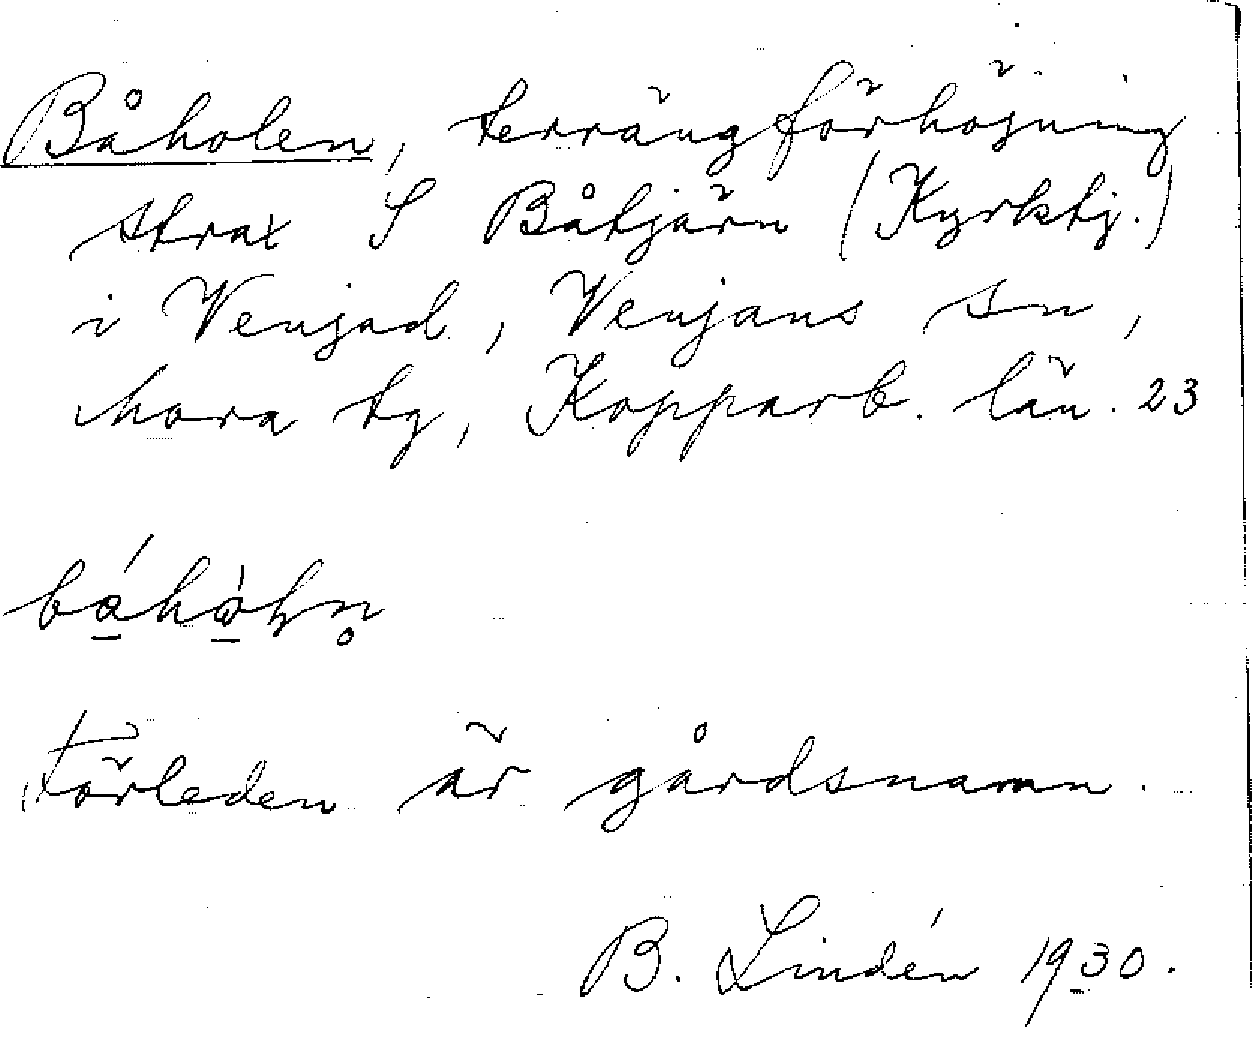 Båholen, terrängförhöjning
strax S Båtjärn (Kyrktj.)
i Venjad., Venjans sn,
Mora tg, Kopparb. län. 23
Förleden är gårdsnamn.
B. Lindén 1930.